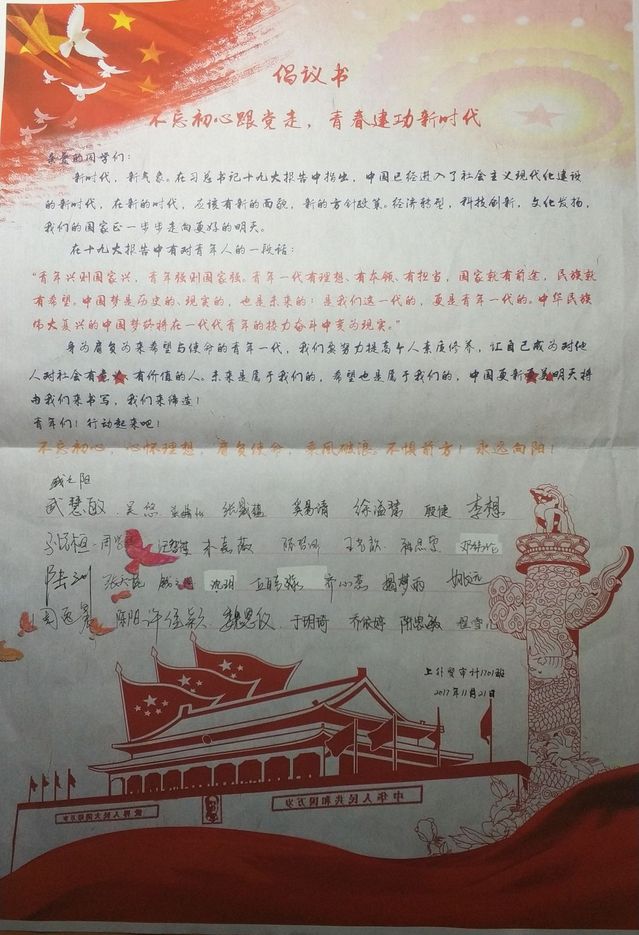 倡议书
不忘初心跟党走，青春建功新时代
亲爱的同学们：
新时代，新气象。在习总书记十九大报告中指出，中国已经进入了社会主义现代化建设
的新时代，在新的时代，应该有新的面貌，新的方针政策。经济转型，科技创新，文化发扬，
我们的国家正一步步走向更好的明天。
在十九大报告中有对青年人的一段话：
“青年兴则国家兴，青年强则国家强。青年一代有理想、有本领、有担当，国家就有前途，民族就
有希望。中国梦是历史的、现实的，也是未来的；是我们这一代的，更是青年一代的。中华民族
伟大复兴的中国梦终将在一代代青年的接力奋斗中变为现实。”
身为肩负为来希望与使命的青年一代，我们要努力提高个人素质修养，让自己成为对他
人对社会有意义、有价值的人。未来是属于我们的，希望也是属于我们的，中国更新更美明天将
由我们来书写，我们来缔造！
青年们！行动起来吧！
不忘初心，心怀理想，肩负使命，乘风破浪。不惧前方！永远向阳！
武慧敏 吴悠 张晟蕴 奚易清 徐溢慧 殷健 李想
陆训 沈玥 乔心蕊 姚远
陈阳 许佳颖 魏恩仪 于玥琦 乔依婷 陆思敏
上外贸审计1701班
2017年11月21日
世界人民大团结万岁
中华人民共和国万岁